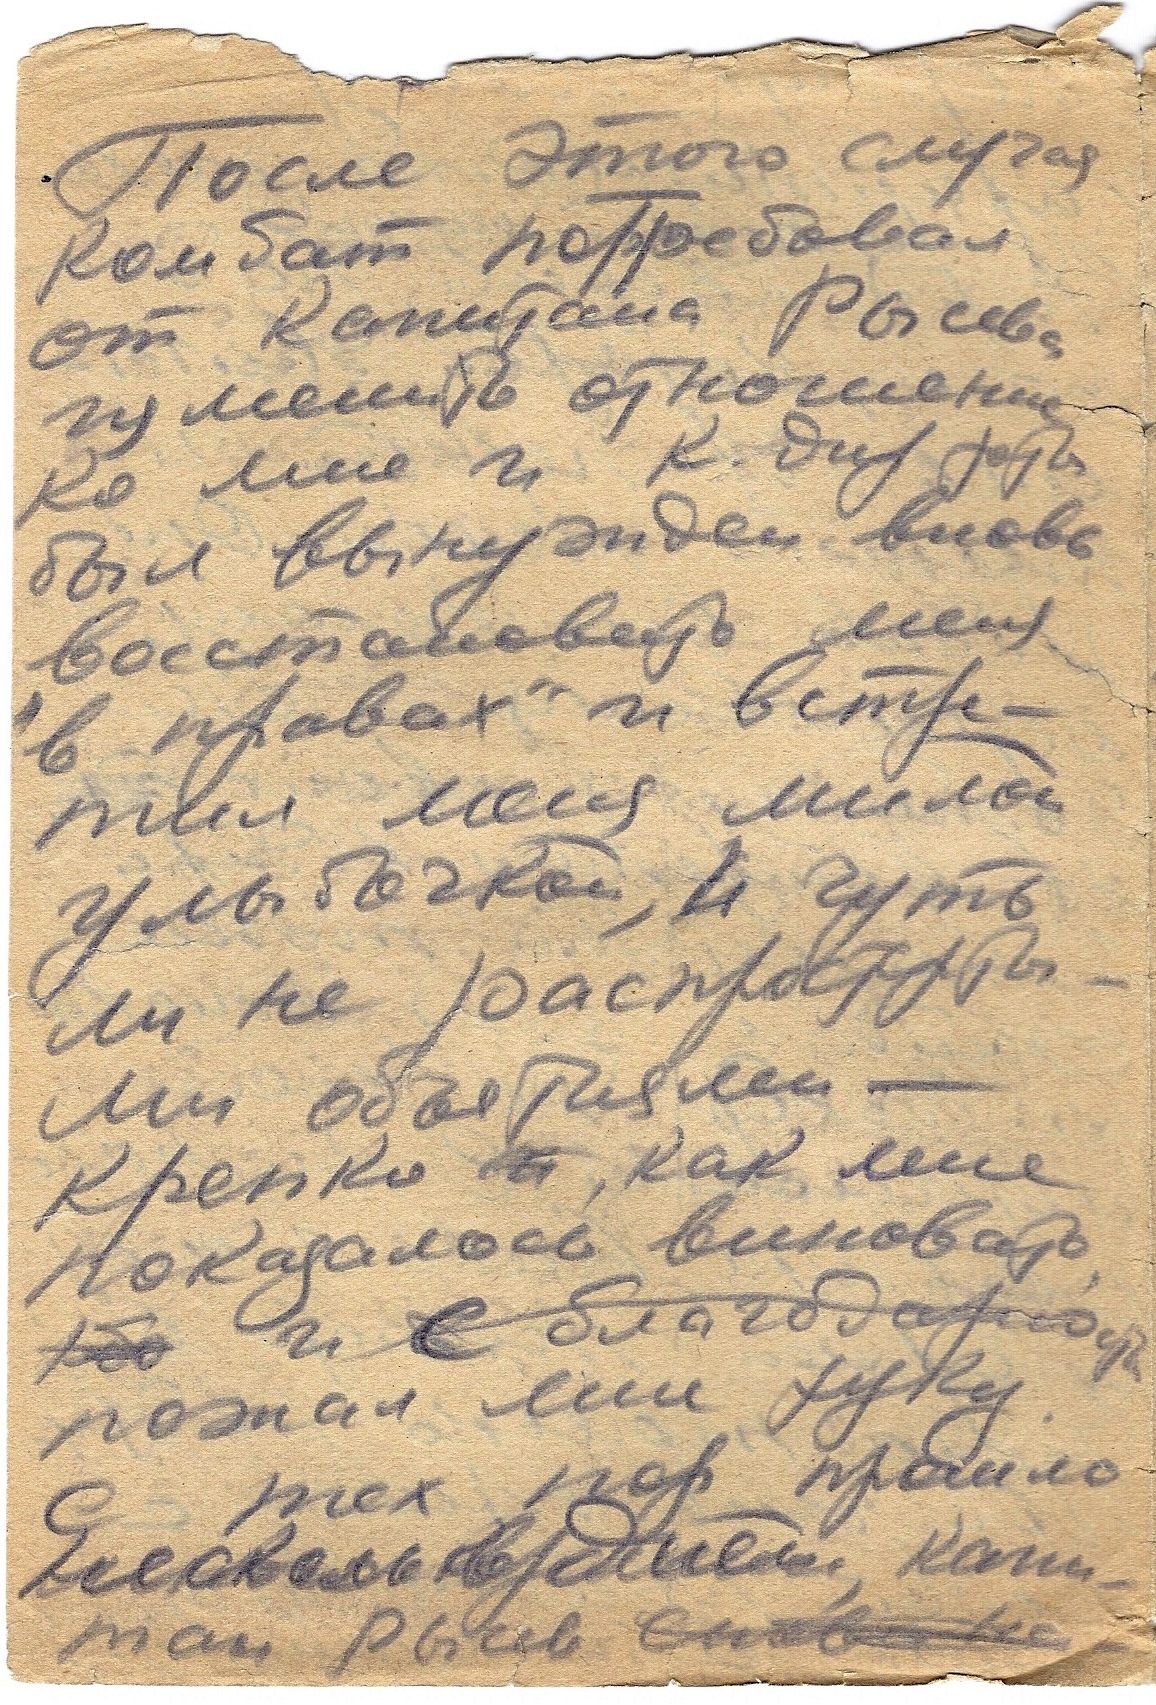 После этого случая
комбат потребовал
от капитана Рысева
изменить отношение
ко мне и к.
был вынужден вновь
восстановить меня
"в правах" и встре-
тил меня милой
улыбочкой, и чуть
ли не распросты-
ми объятиями —
крепко и, как мне
показалось виновато,
и с благодарностью
пожал мне руку.
С тех пор прошло
дней, капи-
тан Рысев